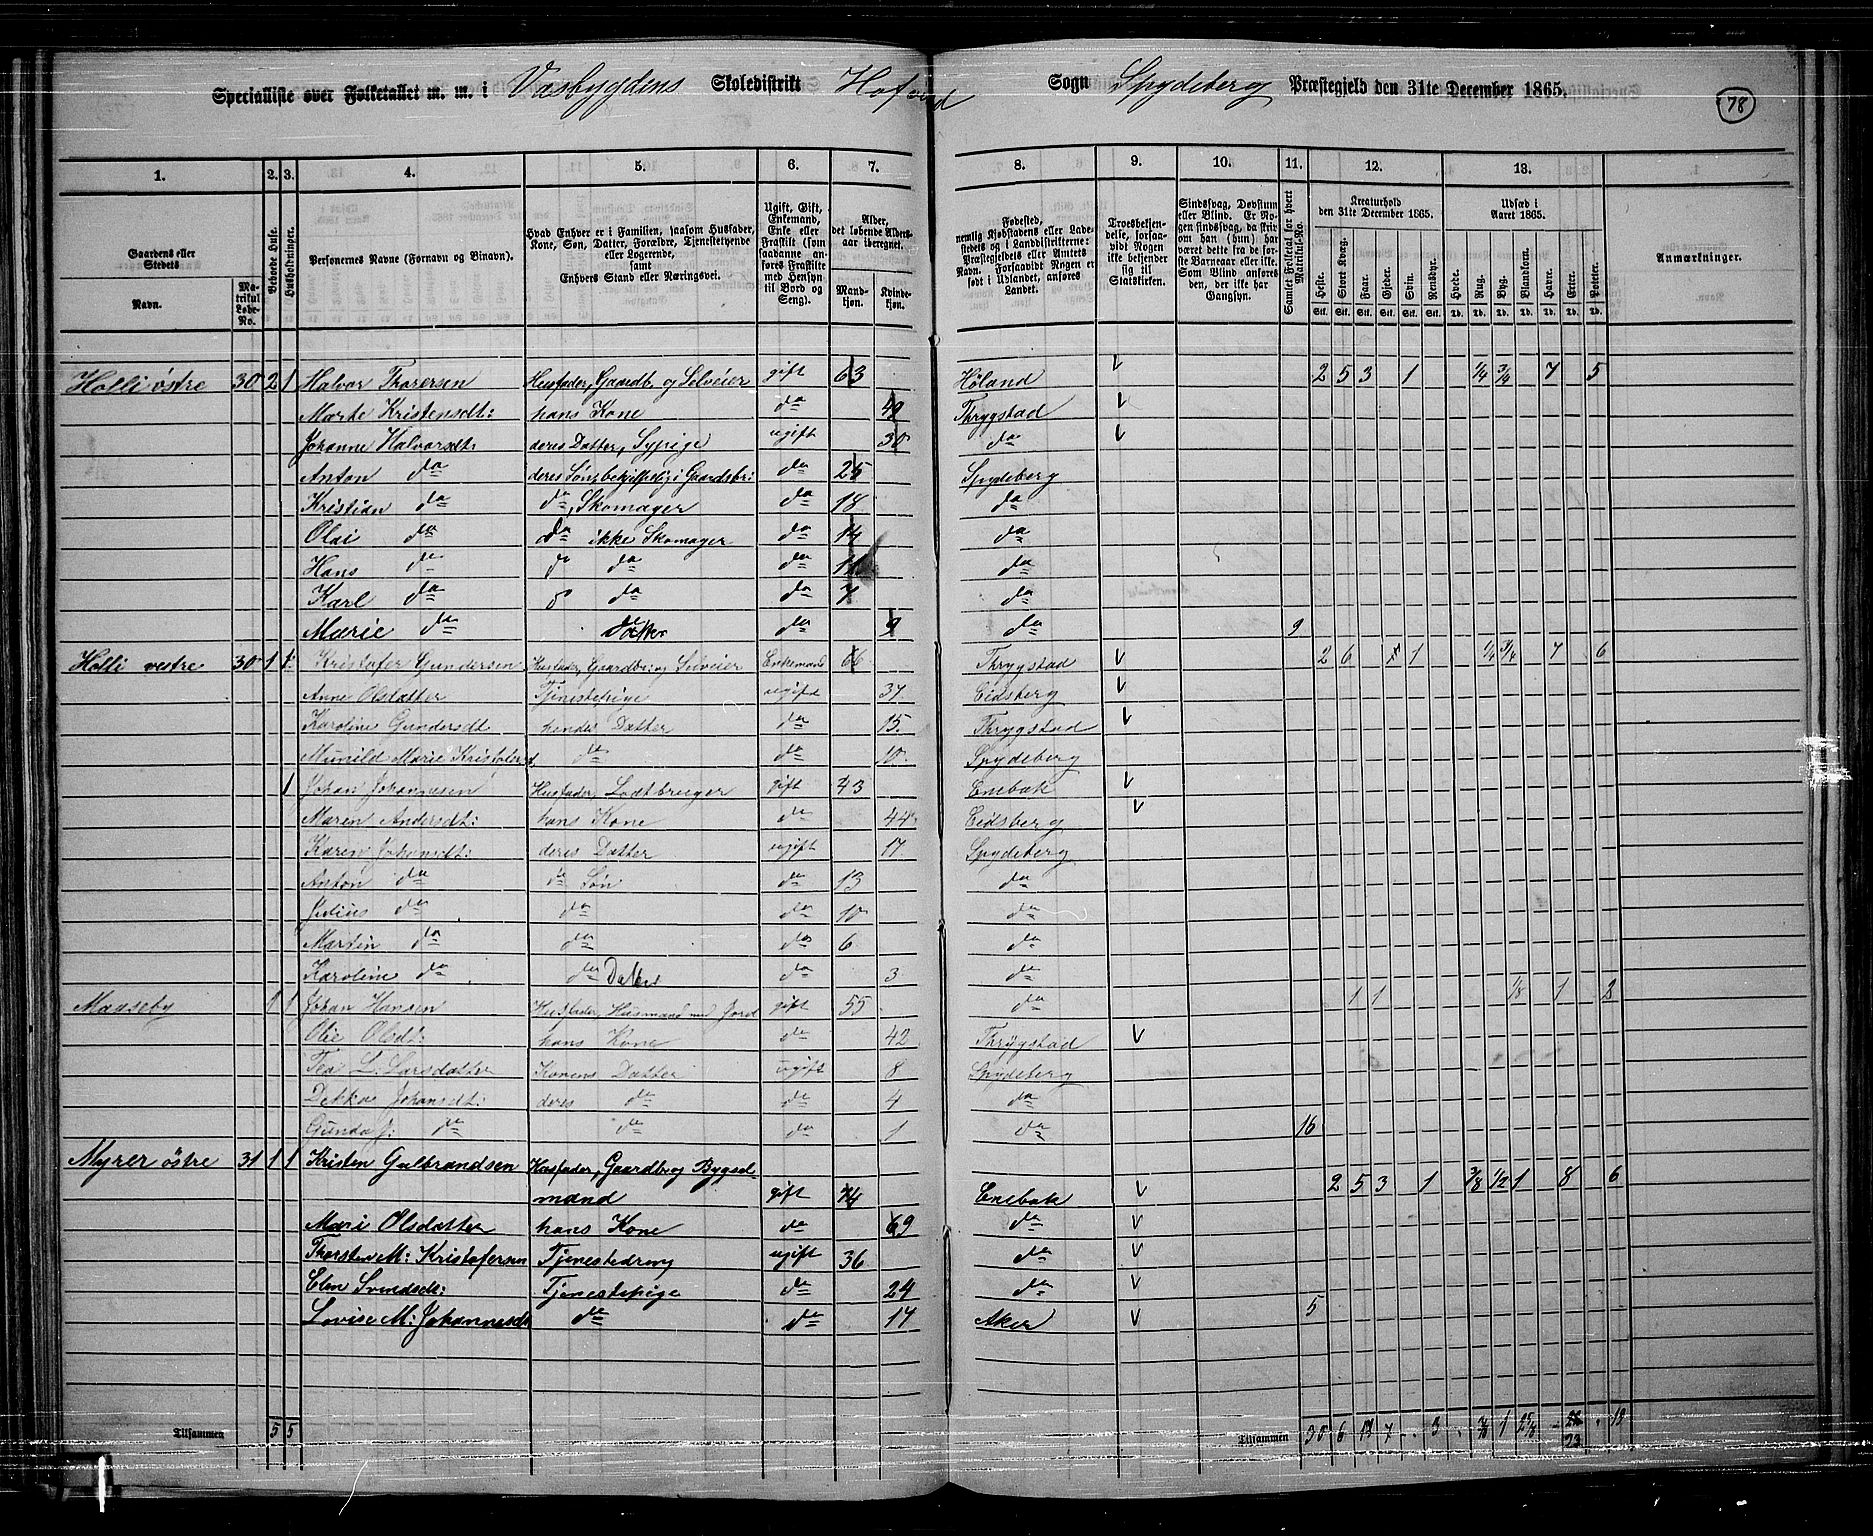 Specialliste over Folketallet m. m. i Vasbygdens Skoledistrikt Hoved Sogn Spydeberg Præstegjeld den 31te December 1865.
78
1. 2. 3. 4. 5. 6. 7. 8. 9. 10. 11. 12. 13.
Gaardens eller Stedets
Navn.
Matrikul Løbe-No.
Beboede Huse.
Husholdninger.
Personernes Navne (Fornavn og Binavn).
Hvad Enhver er i Familien, saasom Husfader, Kone, Søn, Datter, Forældre, Tjenestetyende eller Logerende, samt Enhvers Stand eller Næringsvei.
Ugift, Gift, Enkemand, Enke eller Fraskilt (som saadanne anføres Fraskilte med Hensyn til Bord og Seng).
Alder, det løbende Aldersaar iberegnet.
Mandkjøn. Kvindekjøn.
Fødested, nemlig Kjøbstadens eller Ladestedets og i Landdistrikterne: Præstegjeldets eller Amtets Navn. Forsaavidt Nogen er født i Udlandet, anføres Landet.
Troesbekjendelse, forsaavidt Nogen ikke bekjender sig til Statskirken.
Sindssvag, Døvstum eller Blind. Er Nogen sindssvag, da skriv om han (hun) har været dette fra de første Barneaar eller ikke. Som Blind anføres den, der ikke har Gangsyn.
Samlet Folketal for hvert Matrikul-No.
Kreaturhold den 31te December 1865.
Heste. Stort Kvæg. Faar. Gjeder. Svin. Rensdyr.
Udsæd i Aaret 1865.
Hvede. Rug. Byg. Blandkorn. Havre. Erter. Poteter.
Anmærkninger.
Holli østre 30 2 1 Halvor Thorersen Husfader, Gaardb. og Selveier gift 63 Høland 2 5 3 1 1/4 3/4 7 5
Marte Kristensdt: hans Kone do 49 Thrygstad
Johanne Halvorsdt: deres Datter, Sypige ugift 30 do
Anton do deres Søn, behjelpelig i Gaardsbr: do 25 Spydeberg
Kristian do do, Skomager do 18 do
Olai do do ikke Skomager do 14 do
Hans do do do do do
Karl do do do do 7 do
Marie do Datter do 9 do 9
Holli vestre 30 1 1 Kristofer Gundersen Husfader, Gaardbr: og Selveier Enkemand 66 Thrygstad 2 6 1 1/4 3/4 7 6
Anne Olsdatter Tjenestepige ugift 37 Eidsberg
Karoline Gundersdt hendes Datter do 15 Thrygstad
Munild Marie Kristofersdt do do 10 Spydeberg
1 Johan Johannesen Husfader, Lodtbruger gift 43 Enebak
Maren Andersdt: hans Kone do 44 Eidsberg
Karen Johansdt: deres Datter ugift 17 Spydeberg
Anton do do Søn do 13 do
Julius do do do 10 do
Martin do do do 6 do
Karoline do do Datter do 3 do
Magseby 1 1 Johan Hansen Husfader, Husmand med Jord gift 55 do 1 1 1/8 1 2
Olie Olsdt: hans Kone do 42 Thrygstad
Tea L. Larsdatter Konens Datter ugift 8 Spydeberg
Johansdt: deres do do 4 do
Gunda J: do do do 1 do 16
Myrer østre 31 1 1 Kristen Gulbrandsen Husfader, Gaardbr og Bygsel
mand gift 74 Enebak 2 5 3 1 3/8 1/2 1 8 6
Mari Olsdatter hans Kone do 69 do
Thorsten M: Kristofersen Tjenestedreng ugift 36 do
Elen Svendsdt: Tjenestepige do 24 do
Lovise M: Johannesdt do do 17 Aker 5
Tilsammen 5 5
Tilsammen 30 6 7 3 7/8 23 19